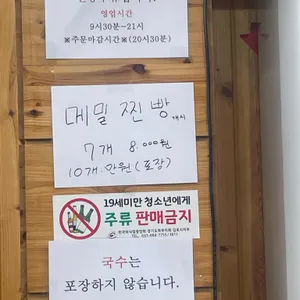 영업시간
9시30분~21시
※주문마감시간※(20시30분)
메밀 찐빵 개시
7개 8.000원
10개 만원(포장)
19세미만 청소년에게
주류 판매금지
국수는
포장하지 않습니다.